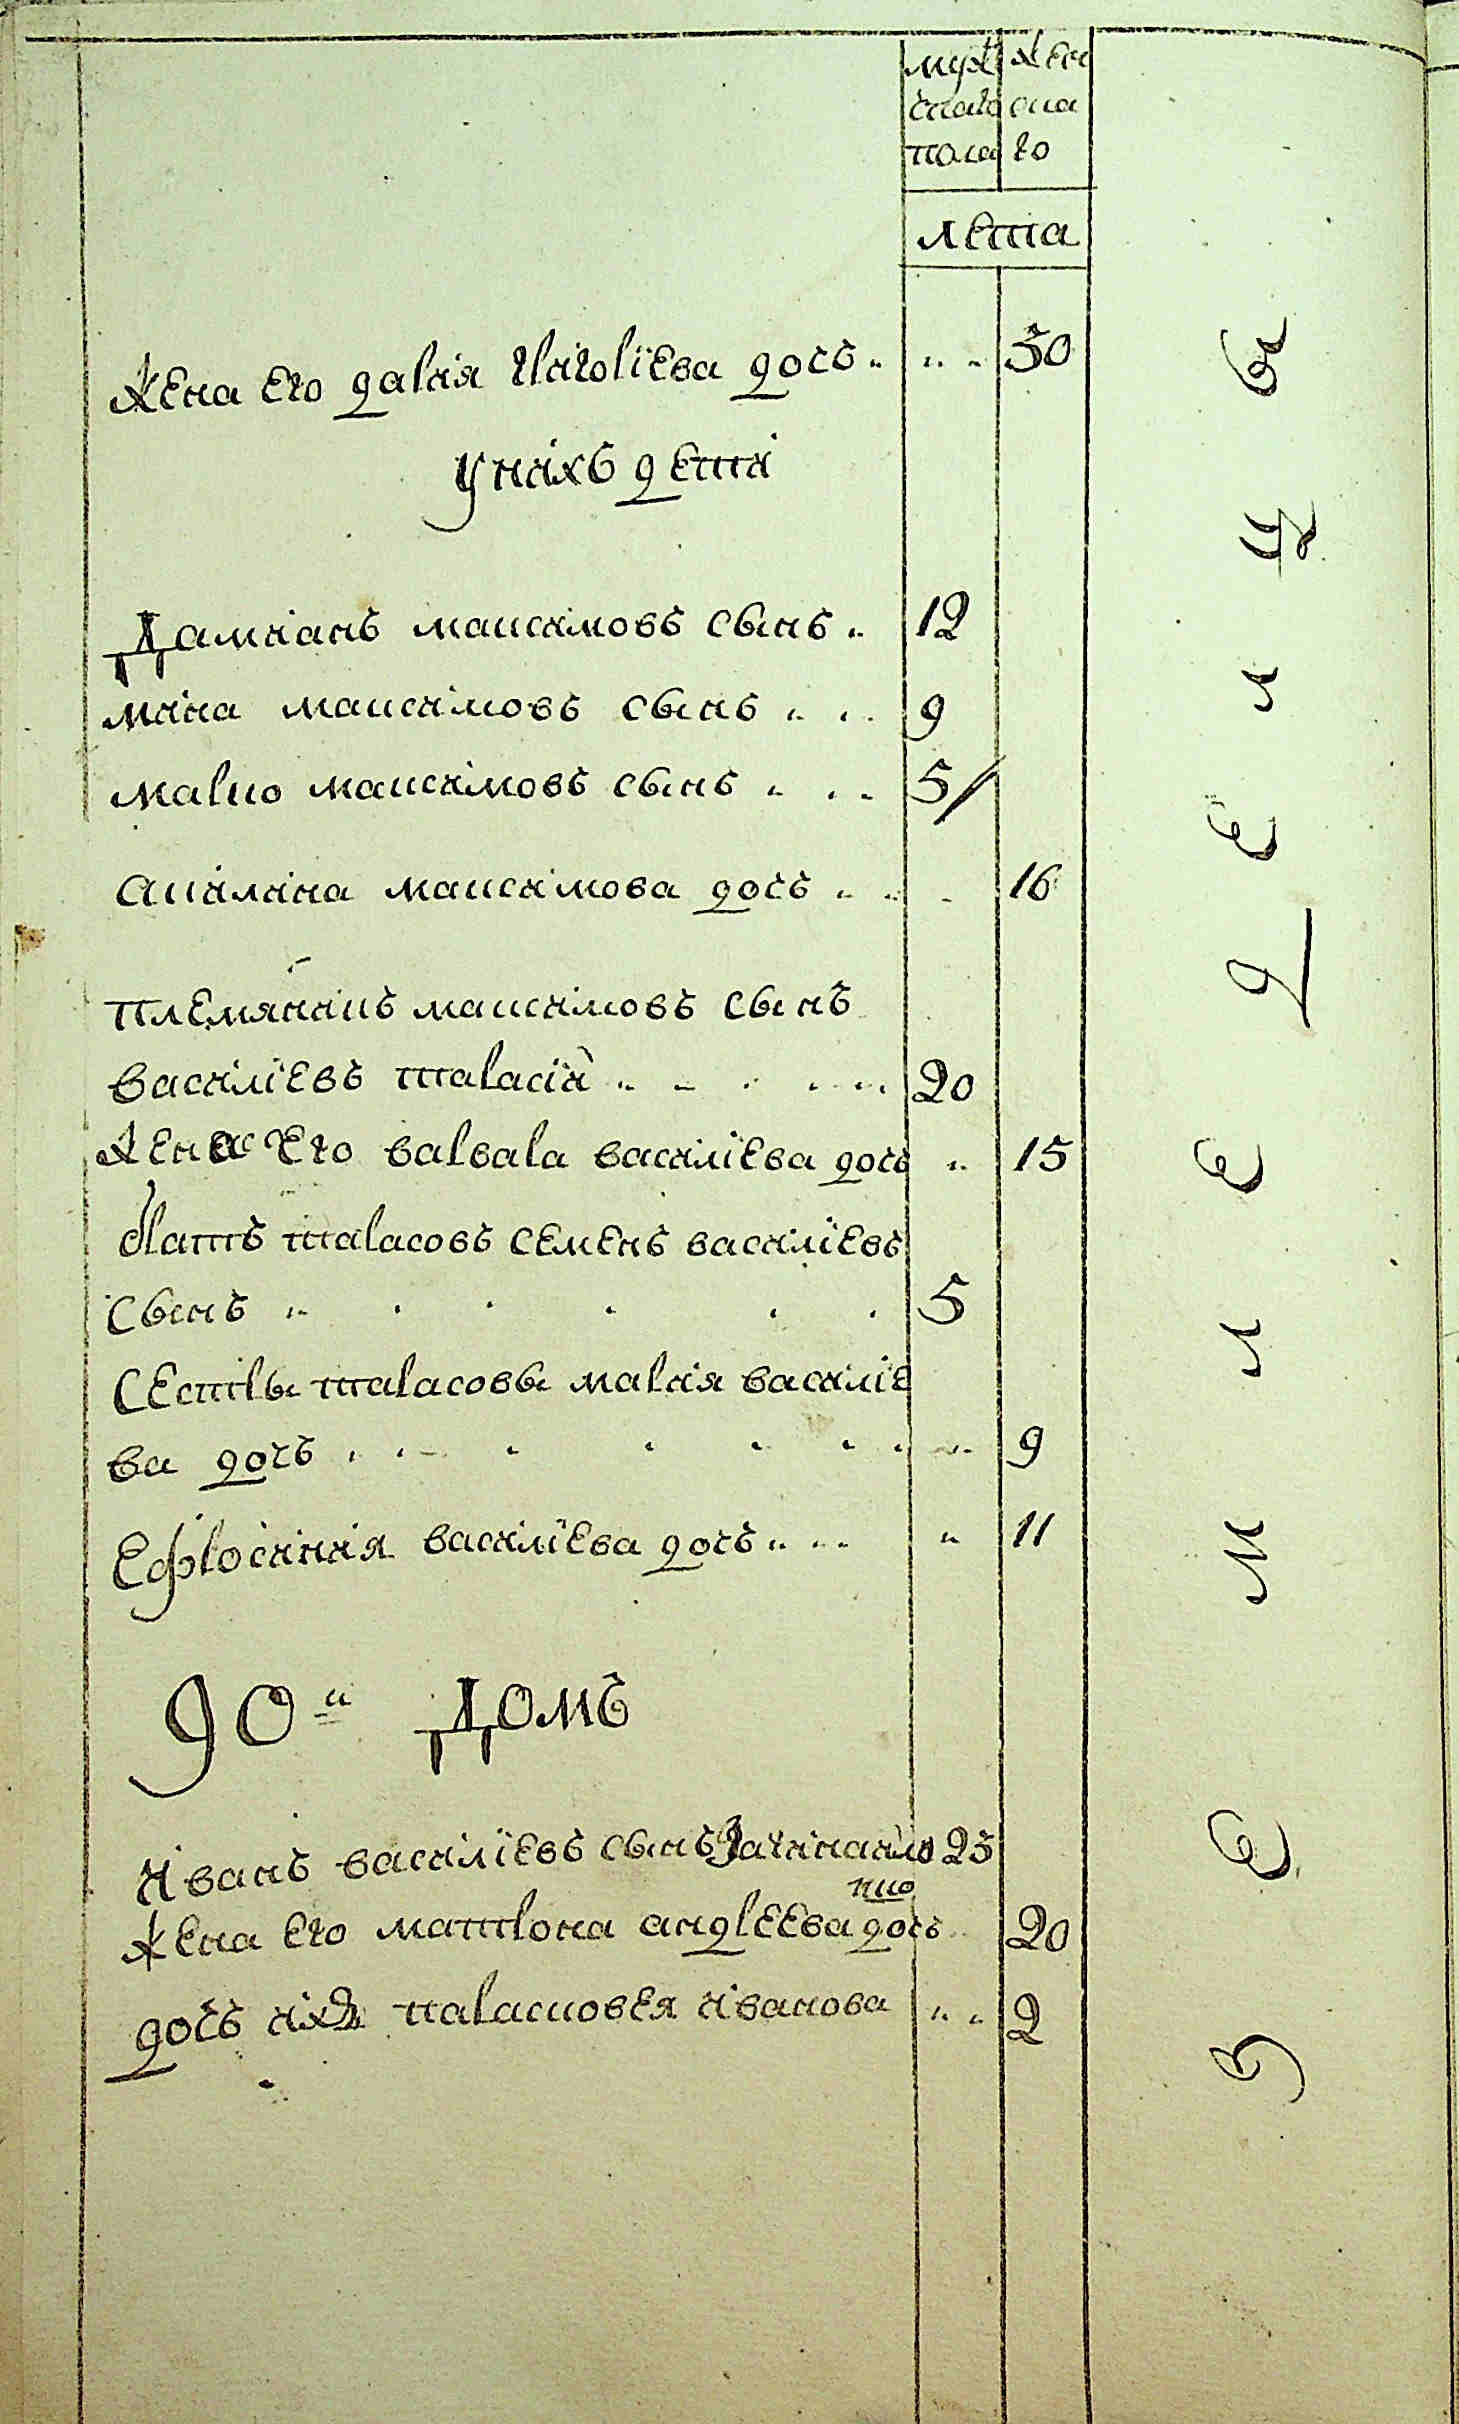 мужескаго пола
женскаго
лета
жена его дария григориева дочь 50
у нихъ дети
Дамианъ максимовъ сынъ 12
мина максимовъ сынъ 9
марко максимовъ сынъ 5
акилина максимова дочь 16
племянникъ максимовъ сынъ
василіевъ тарасій 20
жена его варвара василіева дочь 15
братъ тарасовъ семенъ василіевъ
сынъ 5
сестры тарасовы мария василіе
ва дочь 9
Ефросиния василіева дочь 11
90й Домъ
иванъ василіевъ сынъ 25
жена его матрона андреева дочь 20
дочь ихъ парасковея иванова 2